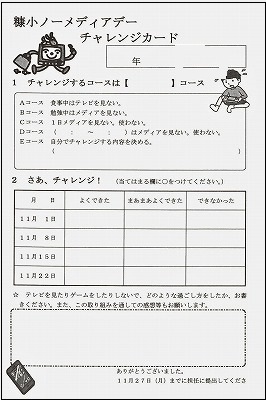 糠小ノーメディアデー
チャレンジカード
年
1 チャレンジするコースは【　　　　】コース
Aコース 食事中はテレビを見ない。
Bコース 勉強中はメディアを見ない。
Cコース 1日メディアを見ない。使わない。
Dコース （　：　～　：　）はメディアを見ない。使わない。
Eコース 自分でチャレンジする内容を決める。
（　　　　　　　　　　）
2 さあ、チャレンジ！ （当てはまる欄に○をつけてください。）
月 日 よくできた まあまあよくできた できなかった
11月 1日
11月 8日
11月15日
11月22日
☆ テレビを見たりゲームをしたりしないで、どのような過ごし方をしたか、お書
きください。また、この取り組みを通しての感想等もお願いします。
ありがとうございました。
11月27日（月）までに担任に提出してくださ